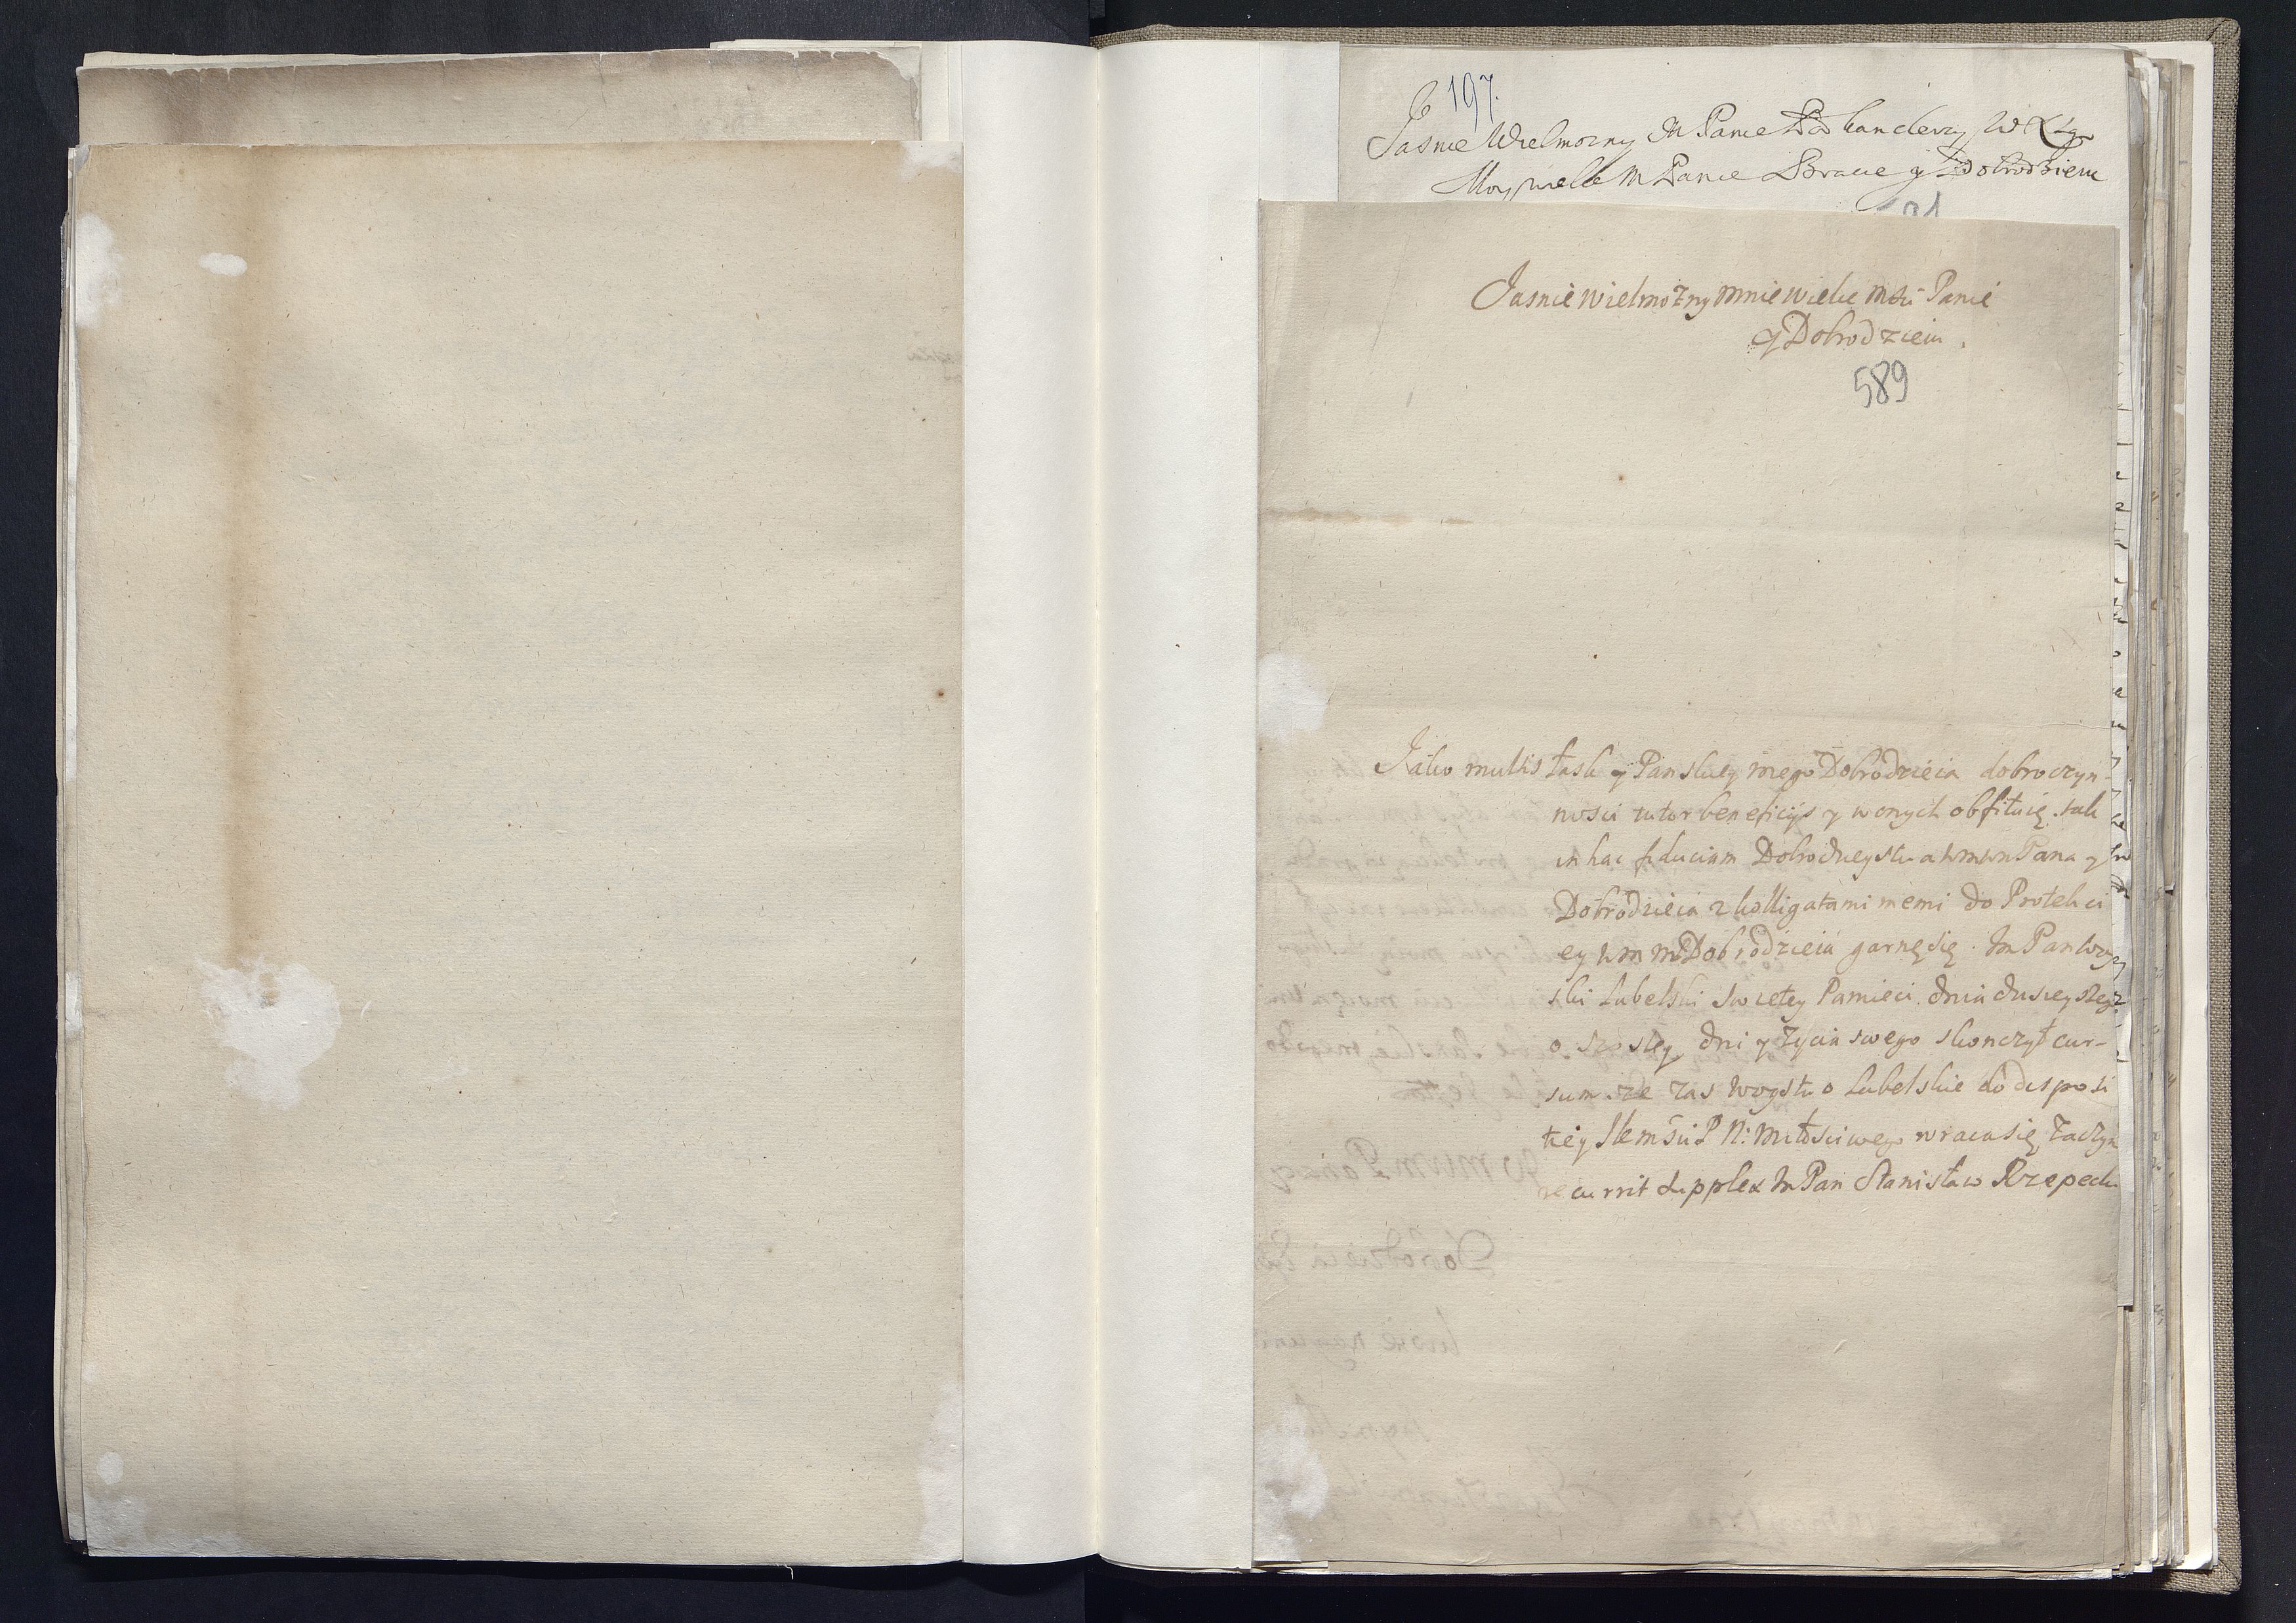 197.
Jasnie Wielmozny M Panie Podkanclerzy W X L
Moy wielce M Panie Bracie y Dobrodzieiu
91
Jasnie wielmożny mnie wielce Mśći Panie
y Dobrodzieiu.
589
Jako multis łask y Panskiey mego Dobrodzieia dobroczyn-
nosci utor beneficijs y w onych obfituię. tak
in hac fiduciam Dobrodzieystwa wmwm Pana y
Dobrodzieia z kolligatami memi do Protekci
ey wm mD Dobrodzieia garnę się. Im Pan Woy
ski Lubelski swietey Pamieci dnia dusieyszeg
o szostey dni y życia swego skonczył cur-
sum. że zas woystwo Lubelskie do disposi
tiey Jkemści P N: Miłosciwego wraca się, zaczym
recurrit supplex Im Pan Stanisław Rzepecki